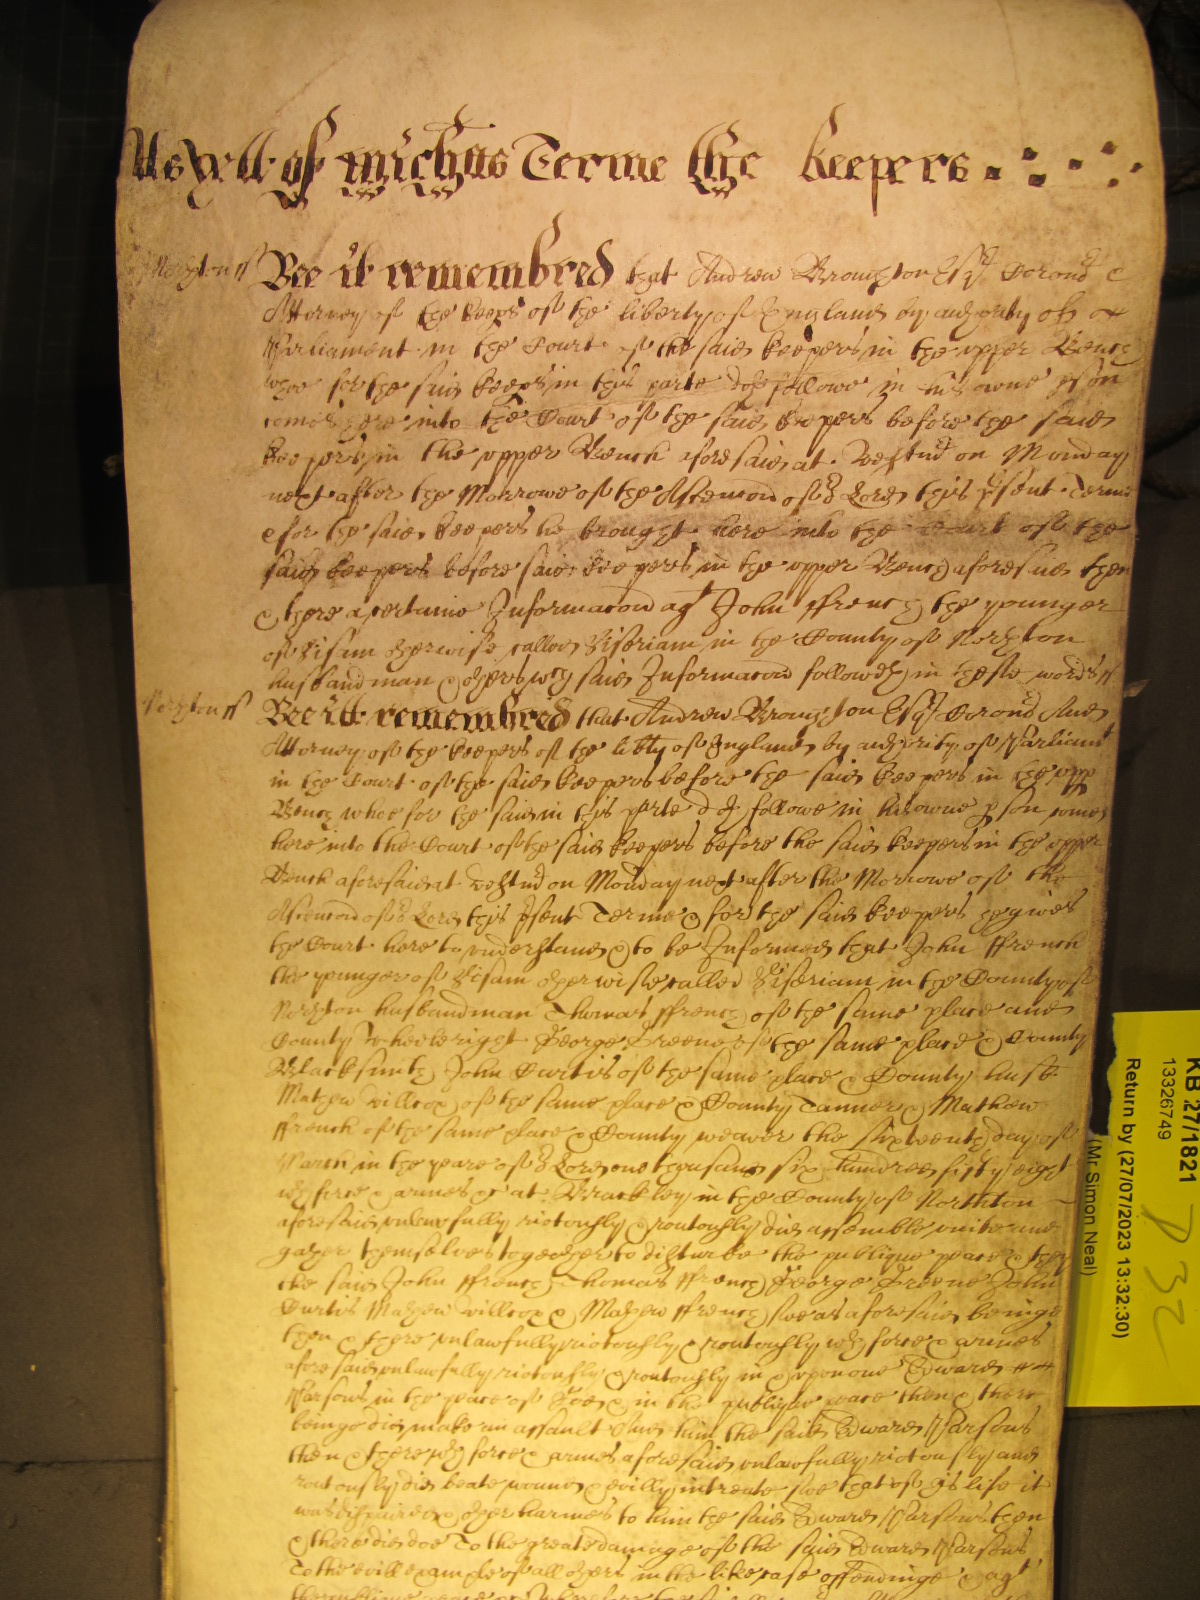 As yett of Mich'as Terme the Keepers
North'ton ss Bee it remembred that Andrew Broughton Esqr Corond' &
Attorney of the Keeps of the liberty of England by authority of
Parliament in the Court of the said Keepers in the upper Bench
whoe for the said Keeps in this parte doth followe in his owne pson
comes here into the Court of the said Keepers before the said
Keepers in the upper Bench aforesaid at Westmr on Monday
next after the Morrowe of the Ascencon of or Lord this psent Terme
& for the said Keepers he brought here into the Court of the
said Keepers before said Keepers in the upper Bench aforesaid then
& there a certaine Informacon agt John ffrench the younger
of Sisam otherwise called Siseriam in the County of North'ton
husbandman & others wch said Informacon followeth in these words ss
North'ton ss Bee itt remembred that Andrew Broughton Esqr Corond' And
Attorney of the Keepers of the lib'ty of England by authority of Parliamt
in the Court of the said Keepers before the said Keepers in the upp
Bench whoe for the said in this parte doth followe in his owne pson comes
here into the Court of the said Keepers before the said Keepers in the upper
Bench aforesaid at Westmr on Monday next after the Morrowe of the
Ascencon of or Lord this psent Terme & for the said Keepers he gives
the Court here to understand & to be Informed that John ffrench
the younger of Sisam otherwise called Siseriam in the County of
North'ton husbandman Thomas ffrench of the same place and
County Wheelewright George Greene of the same place & County
Blacksmith John Curtis of the same place & County husb
Mathew Willcox of the same place & County Tanner & Mathew
ffrench of the same place & County weaver the sixteenth day of
March in the yeare of or Lord one thousand six hundred fifty eight
wth force & armes &c at Brackley in the County of Northton
aforesaid unlawfully riotously & routously did assemble unite and
gather themselves together to disturbe the publique peace & they
the said John ffrench Thomas ffrench George Greene John
Curtis Mathew Willcox & Mathew ffrench soe as aforesaid beinge
then & there unlawfully riotously & routously wth force & armes
aforesaid unlawfully riotously & routously in & upon one Edward
Parsons in the peace of God & in the publique peace then & there
beinge did make an assault And him the said Edward Parsons
then & there wth force & armes aforesaid unlawfully riotously and
routously did beate wound & evilly intreate soe that of his life it
was dispaired & other harmes to him the said Edward Parsons then
& there did doe To the greate damage of the said Edward Parsons
To the evill example of all others in the like case offendinge & agt
the publique peace
KB 27/1821
13326749
Return by (27/07/2023 13:32:30)
(Mr Simon Neal)
D 32